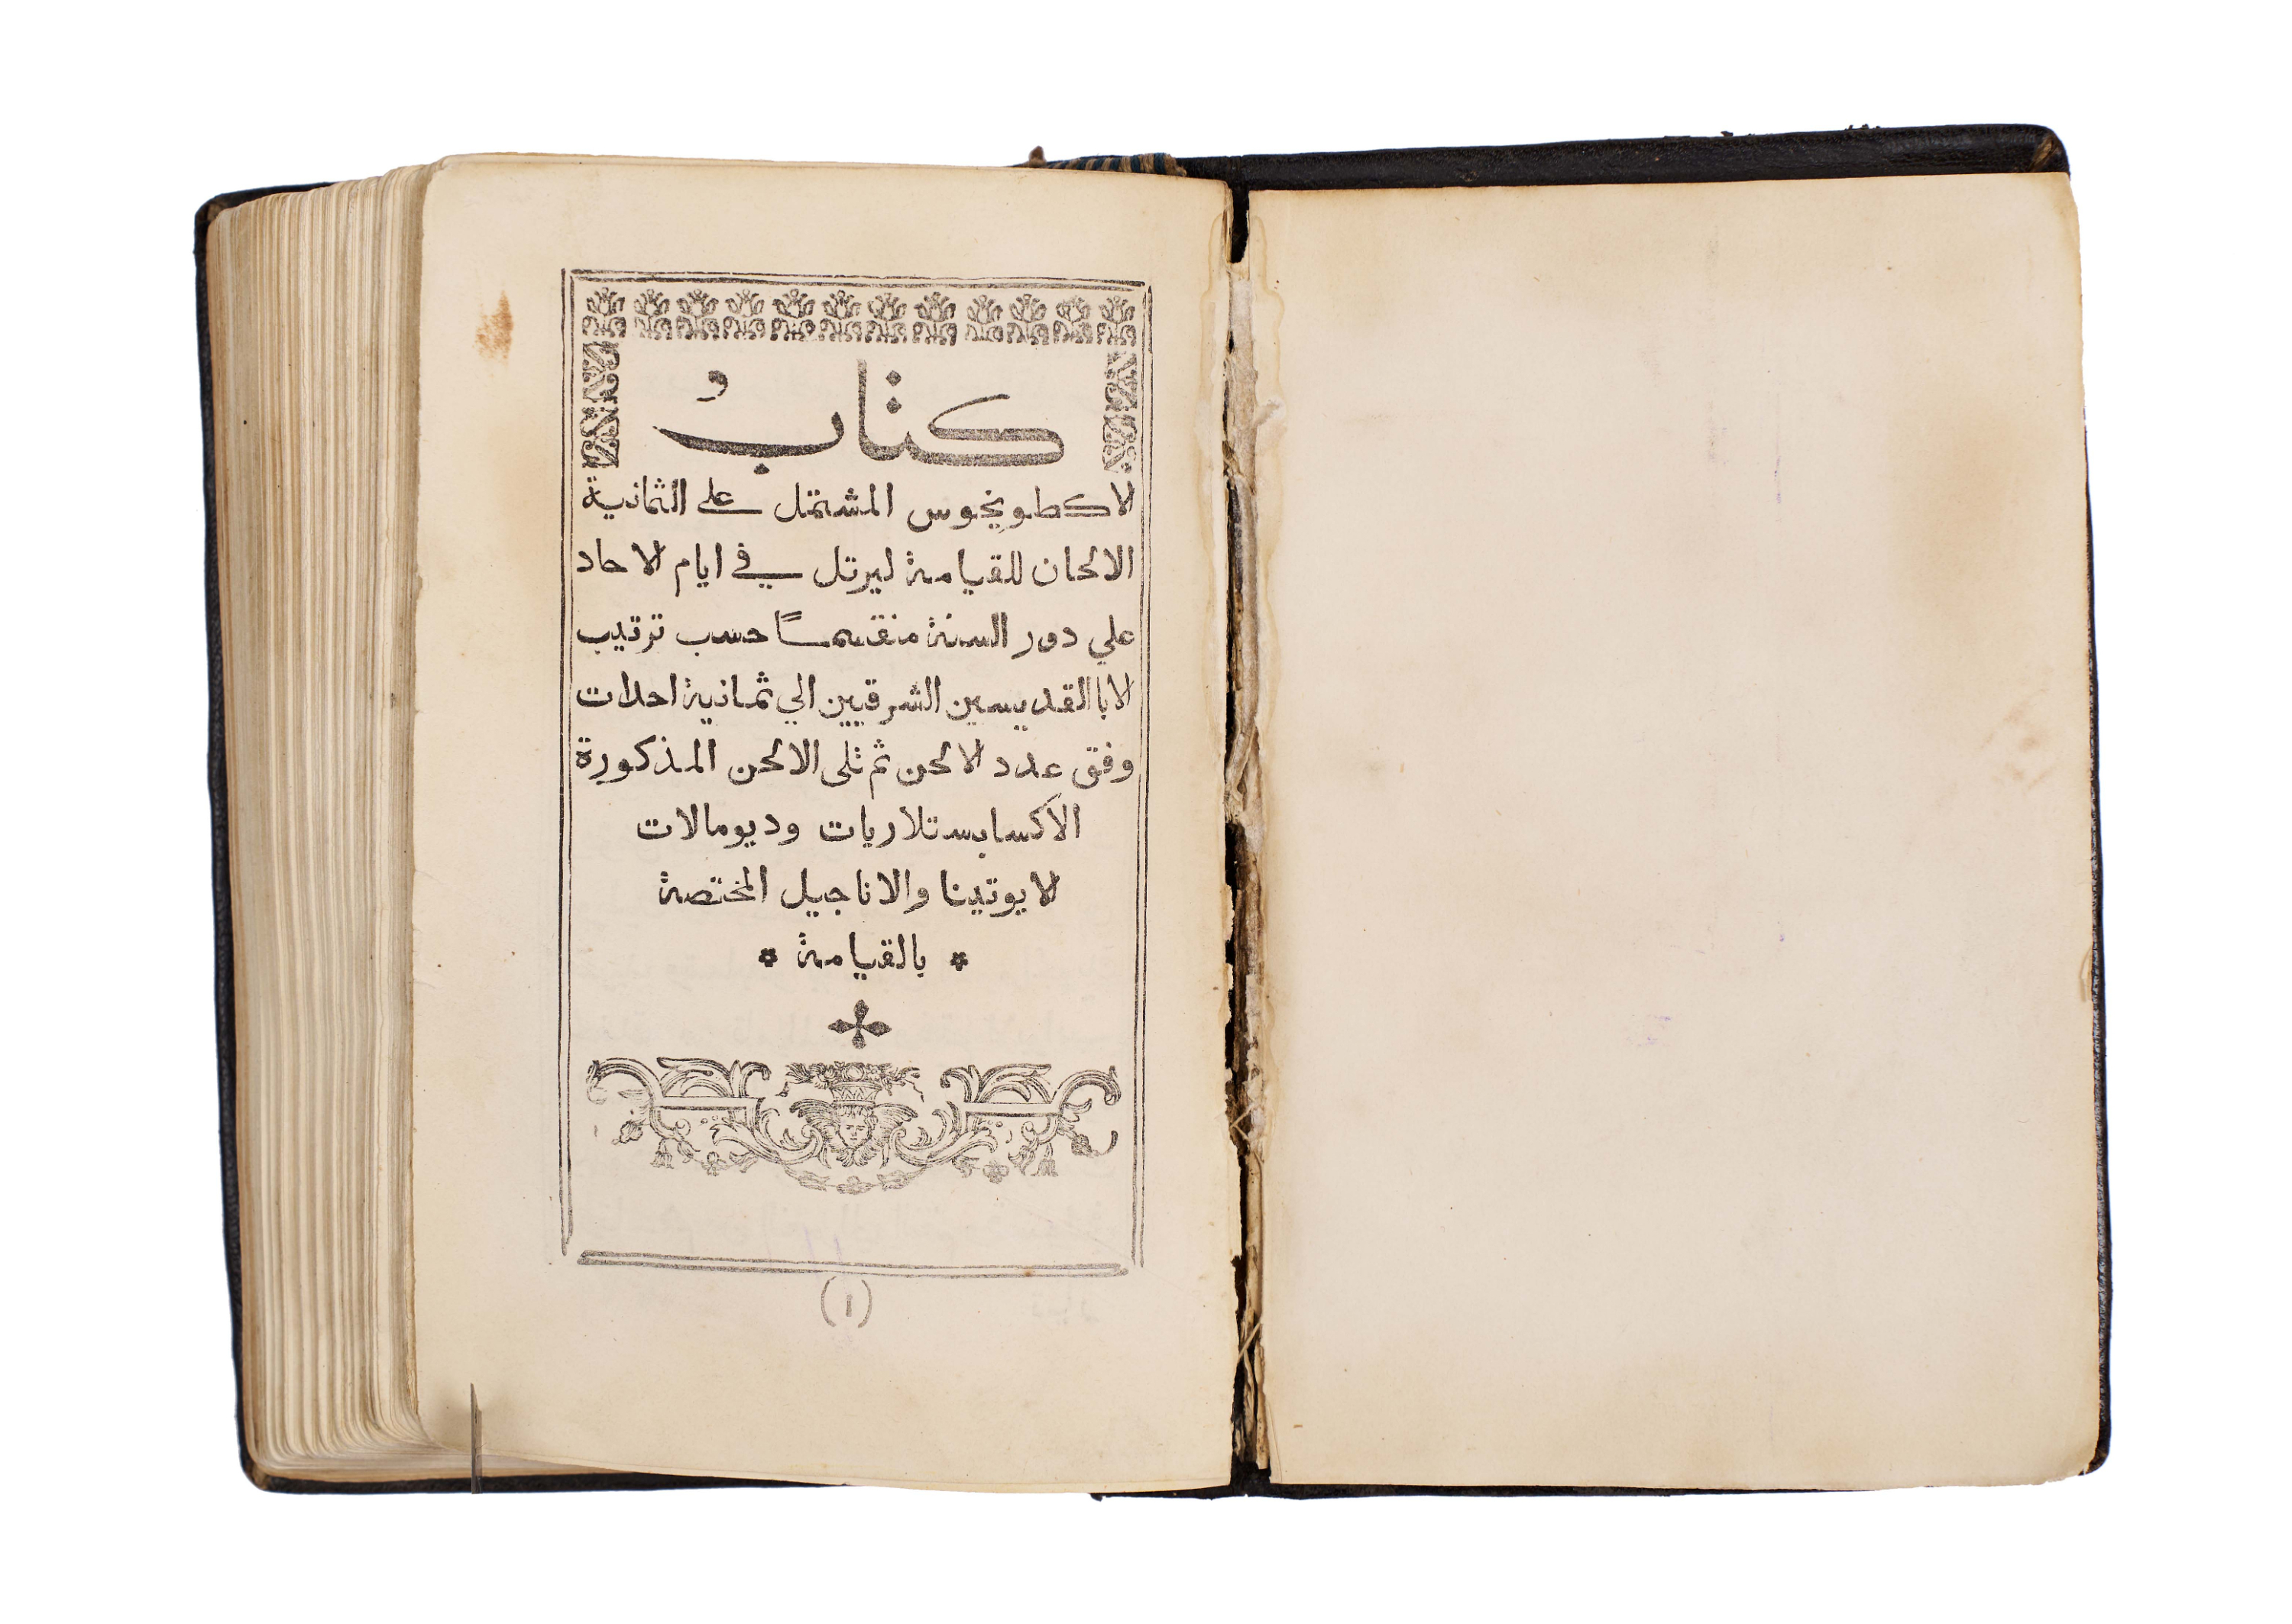 كتابُ
الاكطويخوس المشتمل على الثمانية
الالحان للقيامة ليرتل في ايام الاحاد
علي دور السنة منقسماً حسب ترتيب
الابا القديسين الشرقيين الي ثمانية احدات
وفق عدد الالحن ثم تلى الالحن المذكورة
الاكسابستلاريات وديومالات
الايوتينا والاناجيل المختصة
* بالقيامة *
(١)